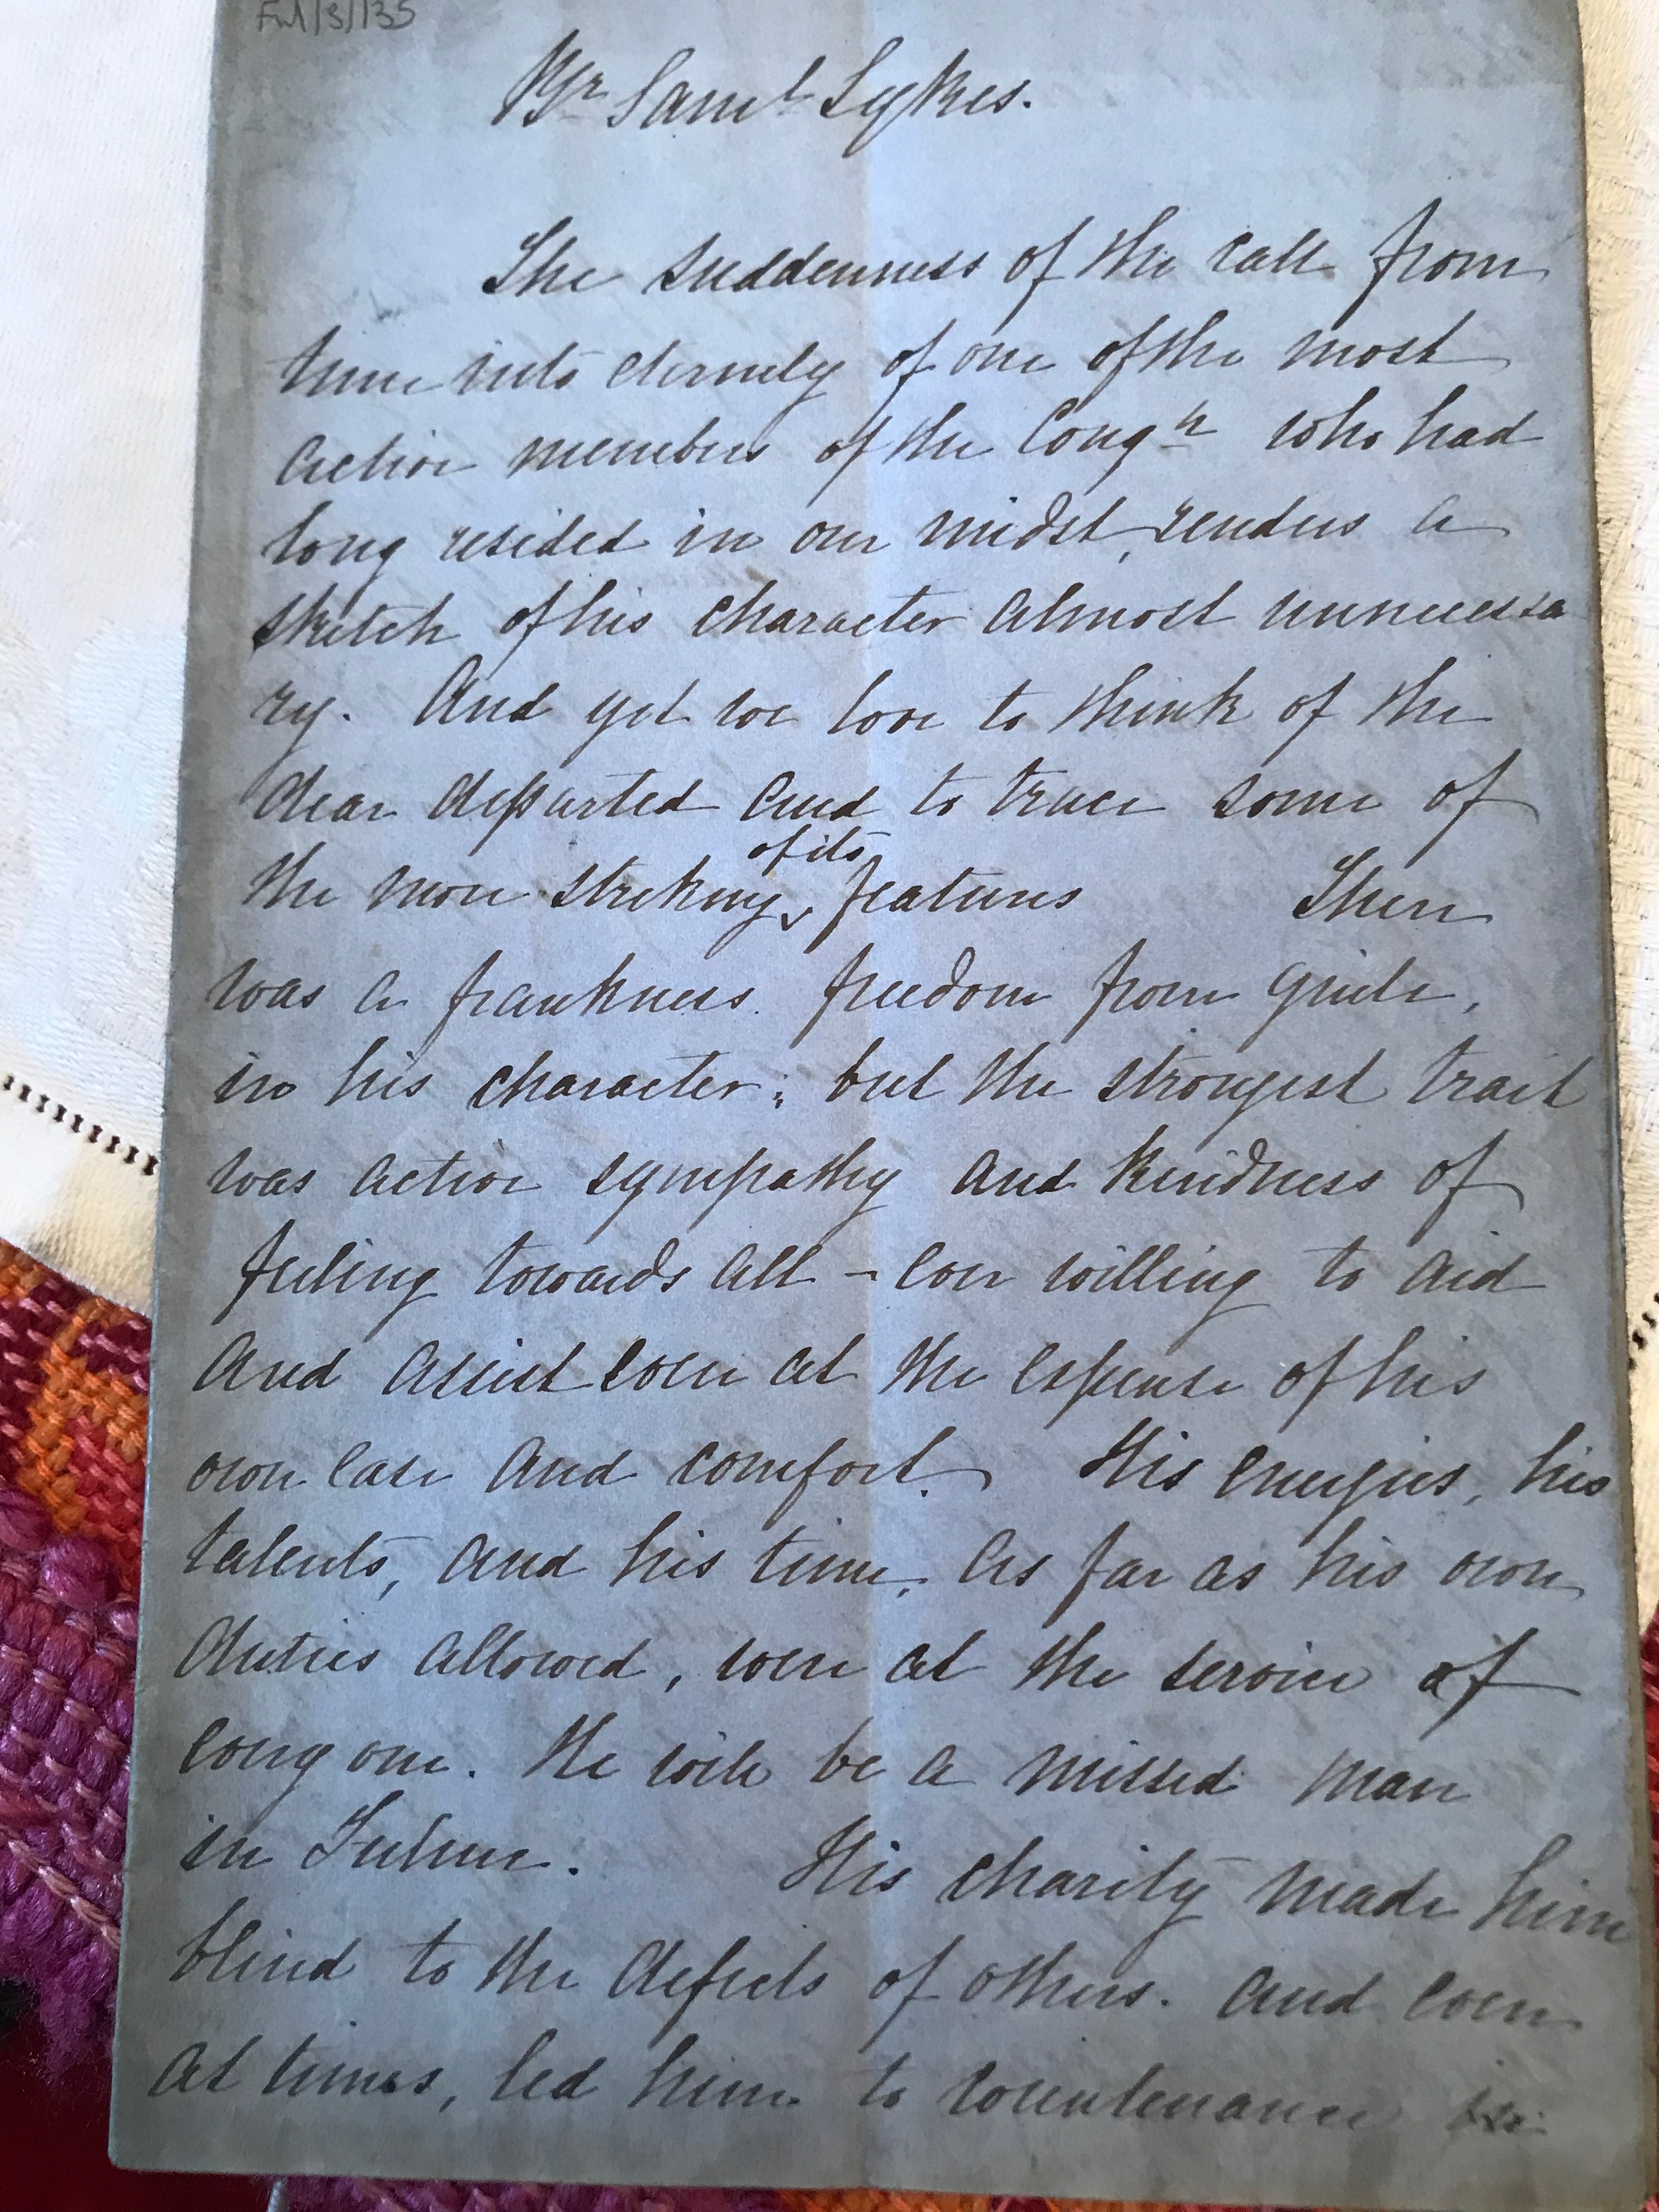 Ful/3/135
Br Saml Sykes.
The suddenness of the call from
time into eternity of one of the most
active members of the Congn who had
long resided in our midst, renders a
sketch of his character almost unnecessa
ry. And yet we love to think of the
dear departed and to trace some of
of its
the more striking features There
was a frankness. freedom from guile,
in his character; but the strongest trait
was active sympathy and kindness of
feeling towards all - ever willing to aid
and assist even at the expense of his
own ease and comfort. His energies, his
talents, and his time, as far as his own
duties allowed, were at the service of
every one. He will be a missed man
in Fulnec. His charity made him
blind to the defects of others. and even
at times, led him to countenance